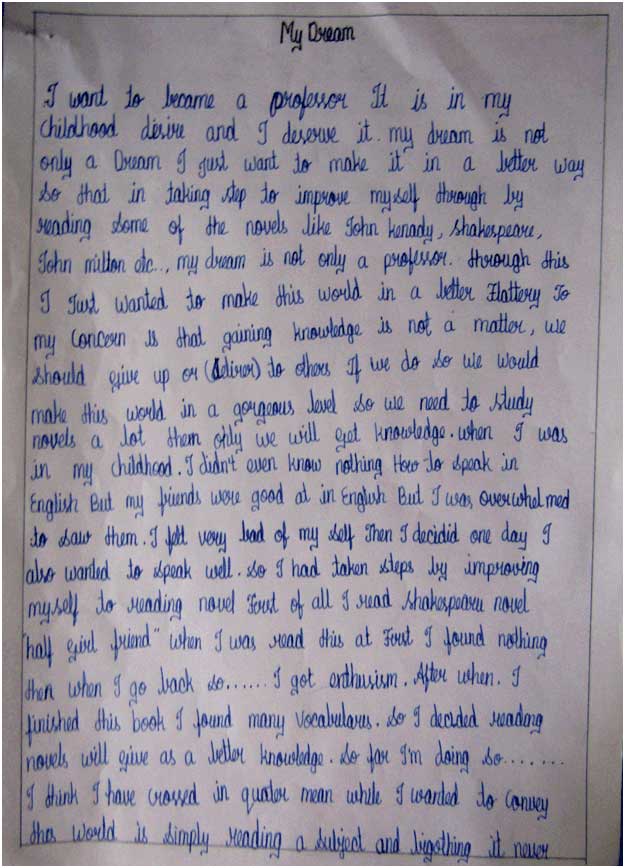 My Dream
I want to became a professor It is in my
childhood desire and I deserve it. my dream is not
only a Dream I just want to make it in a better way
So that in taking step to improve myself through by
reading some of the novels like John kenady, Shakespeare,
John milton etc.., my dream is not only a professor. through this
I Just wanted to make this world in a better Flattery To
my concern is that gaining knowledge is not a matter, we
should give up or (deliver) to others If we do so we would
make this world in a gorgeous level So we need to study
novels a lot them only we will get knowledge. when I was
in my childhood. I didn't even know nothing How to speak in
English But my friends were good at in English But I was overwhelmed
to saw them. I felt very bad of my self Then I decidid one day I
also wanted to speak well. So I had taken steps by improving
myself to reading novel First of all I read Shakespeare novel
"half girl friend" when I was read this at First I found nothing
then when I go back so...... I got enthusism. After when. I
finished this book I found many vocabulars. So I decided reading
novels will give as a better knowledge. So far I'm doing so.......
I think I have crossed in quater mean while I wanted to convey
this world is simply reading a subject and it never